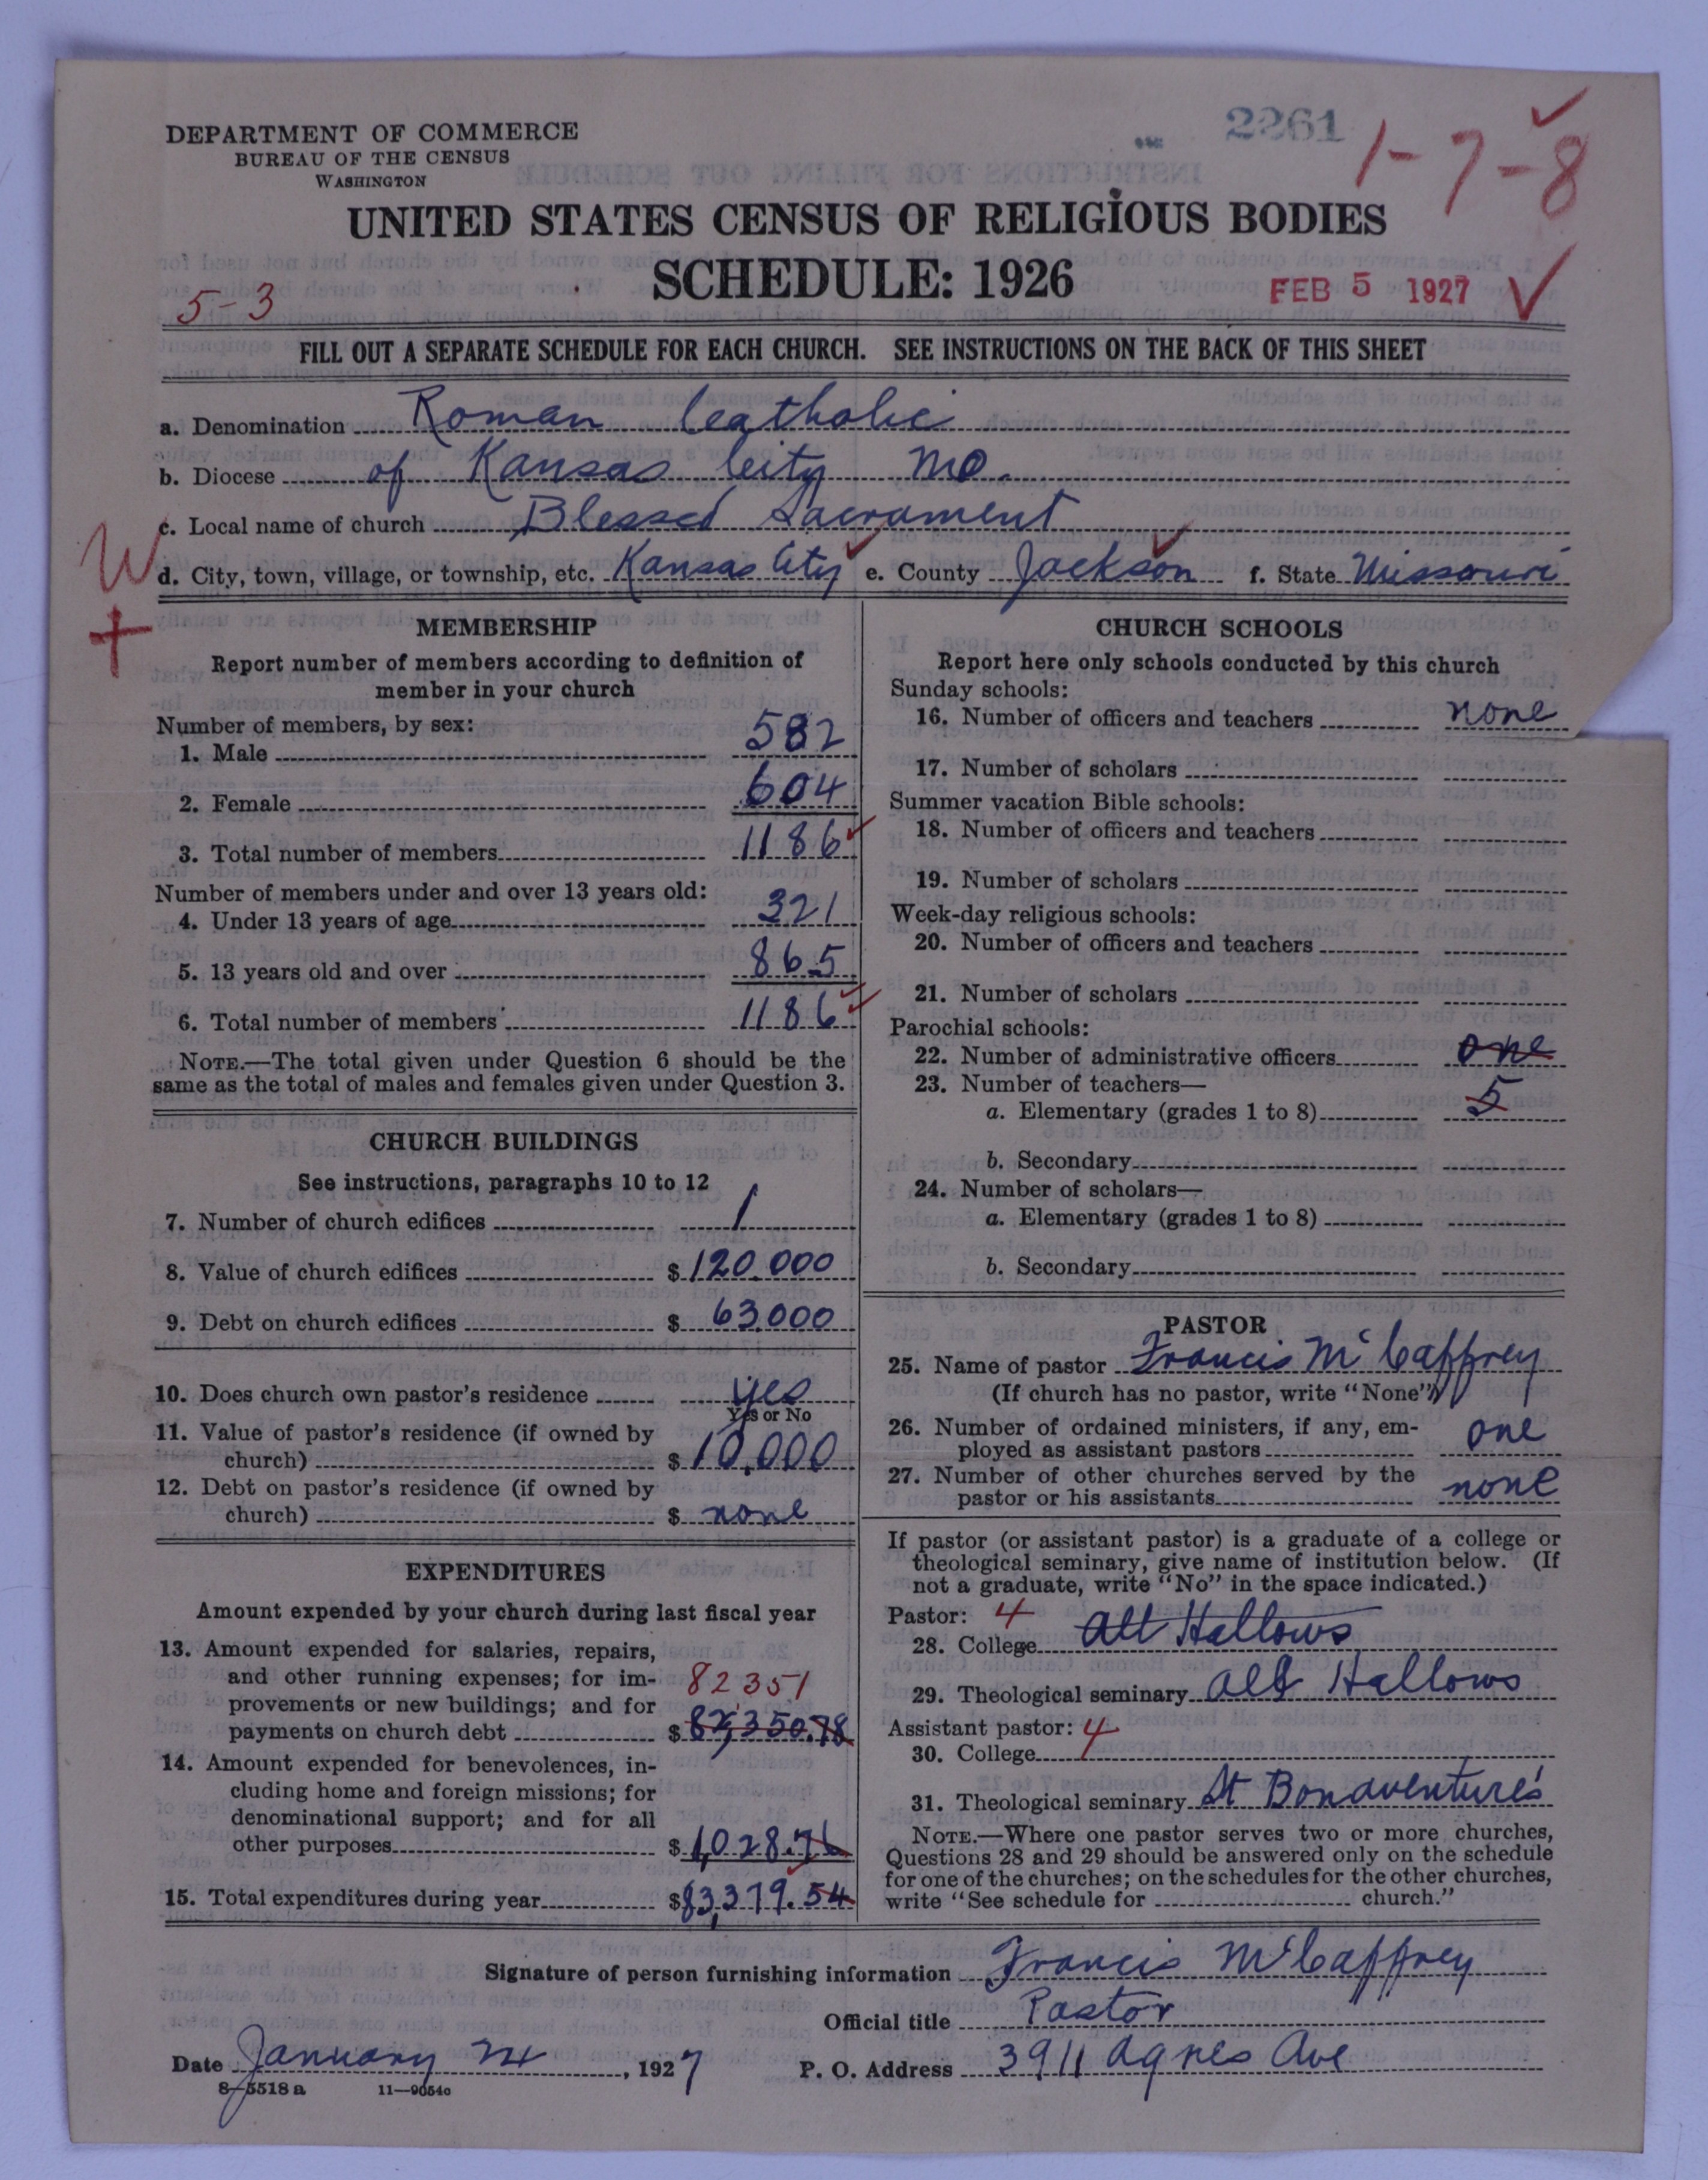 DEPARTMENT OF COMMERCE
BUREAU OF THE CENSUS
WASHINGTON
2261
1-7-8
UNITED STATES CENSUS OF RELIGIOUS BODIES
SCHEDULE: 1926
5-3
FEB 5 1927
FILL OUT A SEPARATE SCHEDULE FOR EACH CHURCH. SEE INSTRUCTIONS ON THE BACK OF THIS SHEET
a. Denomination Roman Catholic
b. Diocese of Kansas City Mo.
c. Local name of church Blessed Sacrament
W
d. City, town, village, or township, etc. Kansas City e. County Jackson f. State Missouri
+
MEMBERSHIP
Report number of members according to definition of
member in your church
Number of members, by sex:
1. Male 582
2. Female 604
3. Total number of members 1186
Number of members under and over 13 years old:
4. Under 13 years of age 321
5. 13 years old and over 865
6. Total number of members 1186
NOTE.—The total given under Question 6 should be the
same as the total of males and females given under Question 3.
CHURCH BUILDINGS
See instructions, paragraphs 10 to 12
7. Number of church edifices 1
8. Value of church edifices $ 120.000
9. Debt on church edifices $ 63.000
10. Does church own pastor's residence yes
Yes or No
11. Value of pastor's residence (if owned by
church) $ 10,000
12. Debt on pastor's residence (if owned by
church) $ none
EXPENDITURES
Amount expended by your church during last fiscal year
13. Amount expended for salaries, repairs,
and other running expenses; for im-
provements or new buildings; and for
82351
payments on church debt $ 82,350.78
14. Amount expended for benevolences, in-
cluding home and foreign missions; for
denominational support; and for all
other purposes $ 1,028.76
15. Total expenditures during year $83,379.54
CHURCH SCHOOLS
Report here only schools conducted by this church
Sunday schools:
16. Number of officers and teachers none
17. Number of scholars
Summer vacation Bible schools:
18. Number of officers and teachers
19. Number of scholars
Week-day religious schools:
20. Number of officers and teachers
21. Number of scholars
Parochial schools:
22. Number of administrative officers one
23. Number of teachers—
a. Elementary (grades 1 to 8) 5
b. Secondary
24. Number of scholars—
a. Elementary (grades 1 to 8)
b. Secondary
PASTOR
25. Name of pastor Francis McCaffrey
(If church has no pastor, write "None")
26. Number of ordained ministers, if any, em-
ployed as assistant pastors one
27. Number of other churches served by the
pastor or his assistants none
If pastor (or assistant pastor) is a graduate of a college or
theological seminary, give name of institution below. (If
not a graduate, write "No" in the space indicated.)
Pastor: 4
28. College All Hallows
29. Theological seminary All Hallows
Assistant pastor: 4
30. College
31. Theological seminary St Bonaventure's
NOTE.—Where one pastor serves two or more churches,
Questions 28 and 29 should be answered only on the schedule
for one of the churches; on the schedules for the other churches,
write "See schedule for church."
Signature of person furnishing information Francis McCaffrey
Official title Pastor
Date January 24, 1927 P. O. Address 3911 Agnes Ave
8-5518 a 11-9054c